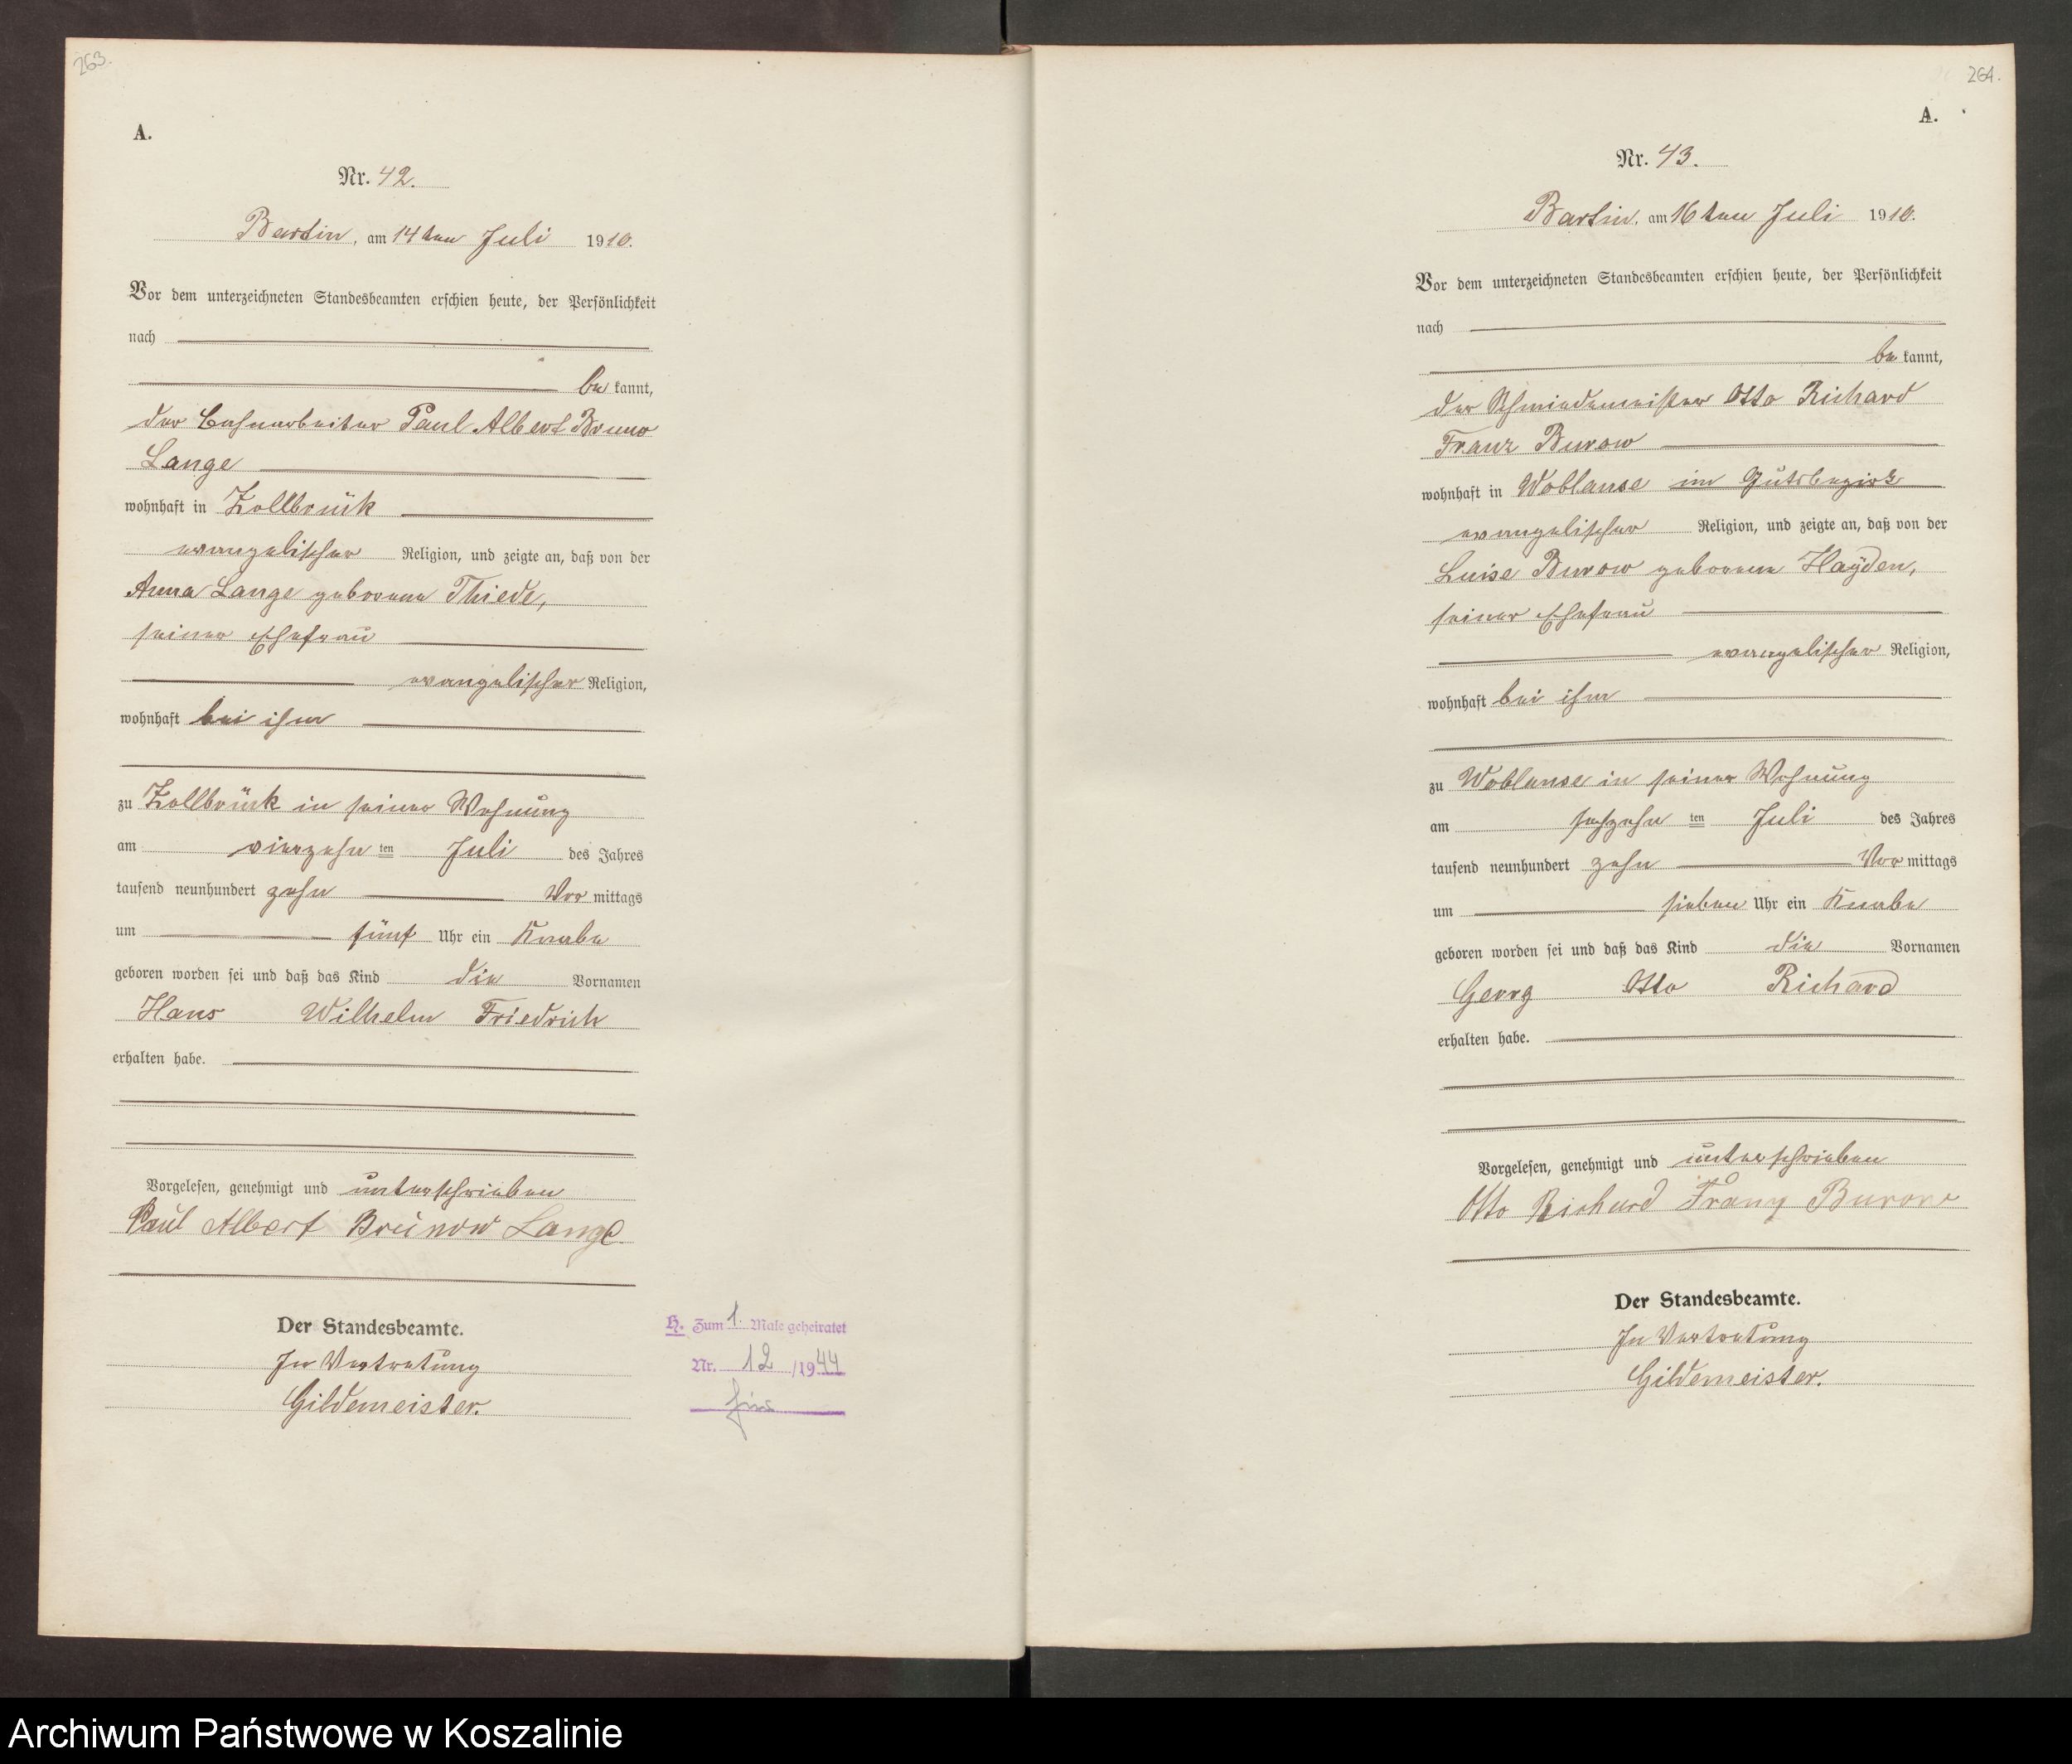 263.
A.
Nr. 42.
Bartin, am 14ten Juli 1910.
Vor dem unterzeichneten Standesbeamten erschien heute, der Persönlichkeit
nach
bekannt,
der Bahnarbeiter Paul Albert Bruno
Lange
wohnhaft in Zollbrück
evangelischer Religion, und zeigte an, daß von der
Anna Lange geborene Thiede,
seiner Ehefrau
evangelischer Religion,
wohnhaft bei ihm
zu Zollbrück in seiner Wohnung
am vierzehn ten Juli des Jahres
tausend neunhundert zehn Vor mittags
um fünf Uhr ein Knabe
geboren worden sei und daß das Kind die Vornamen
Hans Wilhelm Friedrich
erhalten habe.
Vorgelesen, genehmigt und unterschrieben
Paul Albert Brunow Lange
Der Standesbeamte.
In Vertretung
Gildemeister.
H. Zum 1. Male geheiratet
Nr. 12 /1944
264.
A.
Nr. 43.
Bartin, am 16ten Juli 1910.
Vor dem unterzeichneten Standesbeamten erschien heute, der Persönlichkeit
nach
bekannt,
der Schmiedemeister Otto Richard
Franz Burow
wohnhaft in Woblanse im Gutsbezirk
evangelischer Religion, und zeigte an, daß von der
Luise Burow geborene Hayden,
seiner Ehefrau
evangelischer Religion,
wohnhaft bei ihm
zu Woblanse in seiner Wohnung
am sechzehn ten Juli des Jahres
tausend neunhundert zehn Vor mittags
um sieben Uhr ein Knabe
geboren worden sei und daß das Kind die Vornamen
Georg Otto Richard
erhalten habe.
Vorgelesen, genehmigt und unterschrieben
Otto Richard Franz Burow
Der Standesbeamte.
In Vertretung
Gildemeister.
Archiwum Państwowe w Koszalinie